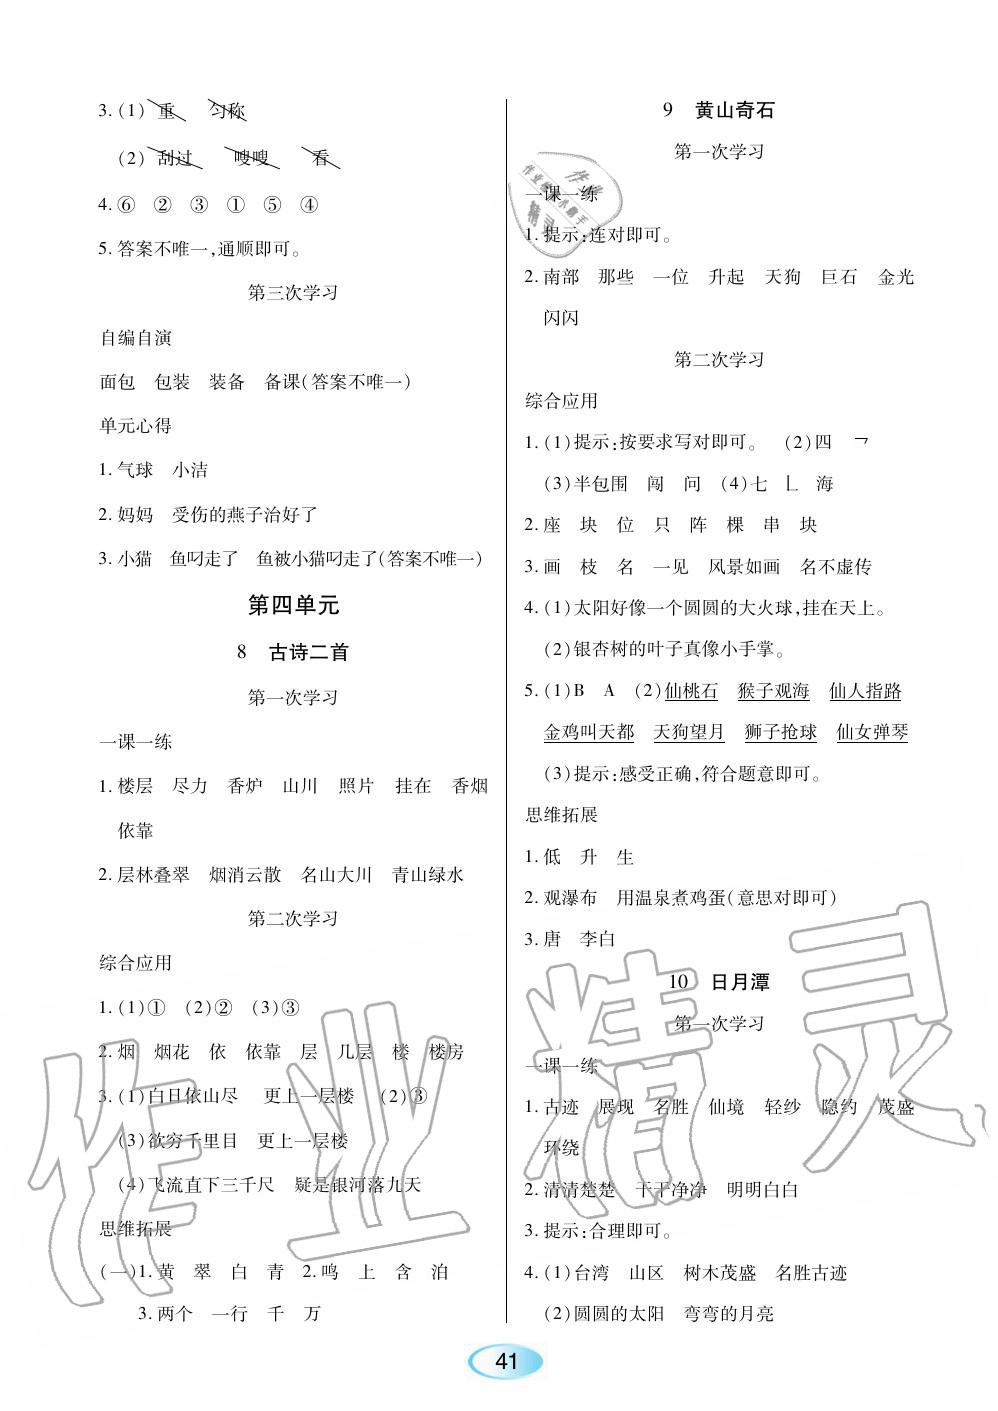 3.(1)重 匀称
(2)刮过 嗖嗖 看
4.⑥ ② ③ ① ⑤ ④
5.答案不唯一,通顺即可。
第三次学习
自编自演
面包 包装 装备 备课(答案不唯一)
单元心得
1.气球 小洁
2.妈妈 受伤的燕子治好了
3.小猫 鱼叼走了 鱼被小猫叼走了(答案不唯一)
第四单元
8 古诗二首
第一次学习
一课一练
1.楼层 尽力 香炉 山川 照片 挂在 香烟
依靠
2.层林叠翠 烟消云散 名山大川 青山绿水
第二次学习
综合应用
1.(1)① (2)② (3)③
2.烟 烟花 依 依靠 层 几层 楼 楼房
3.(1)白日依山尽 更上一层楼 (2)③
(3)欲穷千里目 更上一层楼
(4)飞流直下三千尺 疑是银河落九天
思维拓展
(一)1.黄 翠 白 青 2.鸣 上 含 泊
3.两个 一行 千 万
9 黄山奇石
第一次学习
一课一练
1.提示:连对即可。
2.南部 那些 一位 升起 天狗 巨石 金光
闪闪
第二次学习
综合应用
1.(1)提示:按要求写对即可。 (2)四 ㇕
(3)半包围 闯 问 (4)七 ㇗ 海
2.座 块 位 只 阵 棵 串 块
3.画 枝 名 一见 风景如画 名不虚传
4.(1)太阳好像一个圆圆的大火球,挂在天上。
(2)银杏树的叶子真像小手掌。
5.(1)B A (2)仙桃石 猴子观海 仙人指路
金鸡叫天都 天狗望月 狮子抢球 仙女弹琴
(3)提示:感受正确,符合题意即可。
思维拓展
1.低 升 生
2.观瀑布 用温泉煮鸡蛋(意思对即可)
3.唐 李白
10 日月潭
第一次学习
一课一练
1.古迹 展现 名胜 仙境 轻纱 隐约 茂盛
环绕
2.清清楚楚 干干净净 明明白白
3.提示:合理即可。
4.(1)台湾 山区 树木茂盛 名胜古迹
(2)圆圆的太阳 弯弯的月亮
41
作业精灵